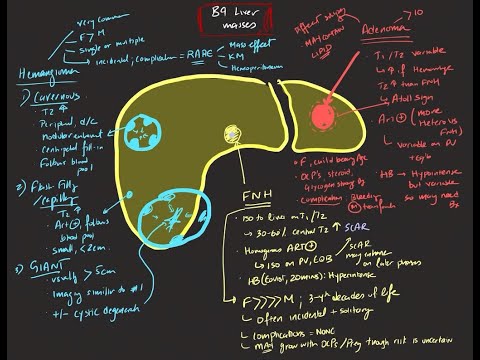 B9 Liver
masses
very common
F > M
Single or multiple
incidental, complication = RARE
Mass effect
KM
Hemoperitoneum
Hemangioma
1) Cavernous
T2 ↑
Peripheral, d/c
nodular enhancement
Centripetal fill-in
Follows blood
pool
2) Flash Filling
/capillary
T2 ↑
Art ⊕, follows
blood pool
small, <2cm
3) GIANT
usually > 5cm
Imaging similar to #1
+/- cystic degeneration
FNH
iso to liver on T1/T2
30-60% central T2 ↑ SCAR
Homogenous ART ⊕
SCAR
may enhance
on later phases
iso on PV, EQB
HB (Eovist, 20mins): Hyperintense
F >>>> M ; 3-4th decades of life
Often incidental + solitary
complications = NONE
MAY grow with OCPs/Preg though risk is uncertain
Adenoma
>10
LIPID
T1/T2 variable
↑ if Hemorrhage
T2 ↑ than FNH
Atoll sign
Art ⊕ (more
Heterogenous vs
FNH)
variable on PV
+ Eq'b
HB → Hypointense
but variable
so may need
Bx
F, child bearing Age
OCP's, steroid,
Glycogen storage Dx
Complication: Bleeding